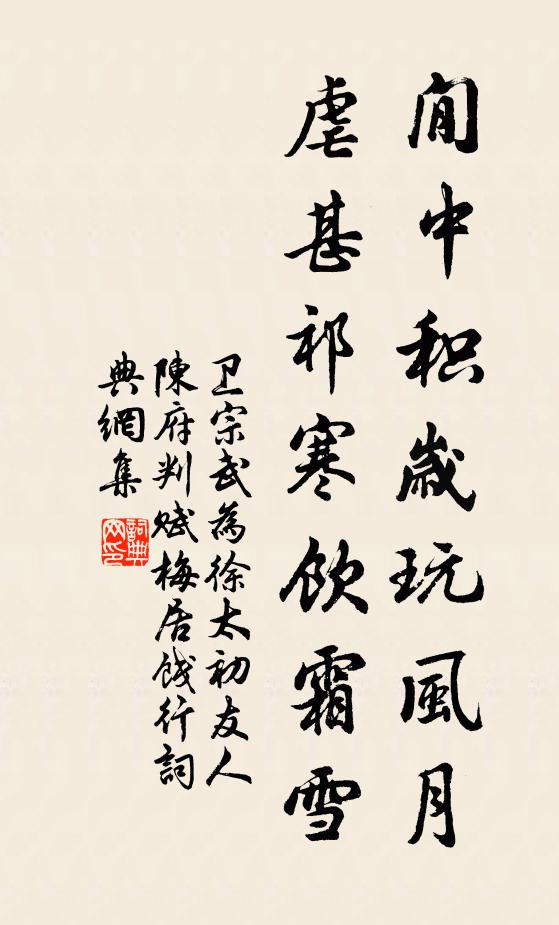 閒中积歲玩風月
虐甚祁寒飲霜雪
卫宗武為徐太初友人
陳府判赋梅居餞行詞
典網集
詞典
网印